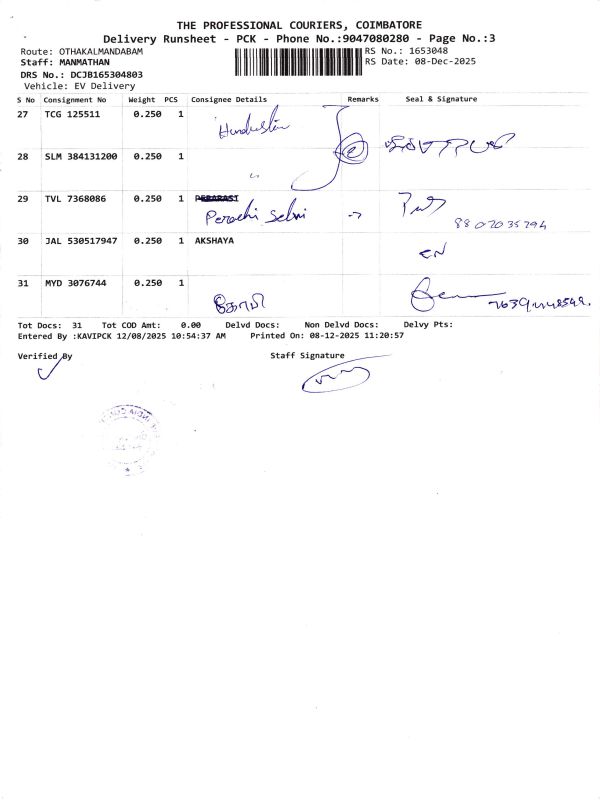 THE PROFESSIONAL COURIERS, COIMBATORE
Delivery Runsheet - PCK - Phone No.:9047080280 - Page No.:3
Route: OTHAKALMANDABAM
RS No.: 1653048
Staff: MANMATHAN
RS Date: 08-Dec-2025
DRS No.: DCJB165304803
Vehicle: EV Delivery
S No Consignment No Weight PCS Consignee Details Remarks Seal & Signature
27 TCG 125511 0.250 1 Hindustan
28 SLM 384131200 0.250 1 "
29 TVL 7368086 0.250 1
Perachi Selvi
8807035294
30 JAL 530517947 0.250 1 AKSHAYA
31 MYD 3076744 0.250 1
Tot Docs: 31 Tot COD Amt: 0.00 Delvd Docs: Non Delvd Docs: Delvy Pts:
Entered By :KAVIPCK 12/08/2025 10:54:37 AM Printed On: 08-12-2025 11:20:57
Verified By Staff Signature